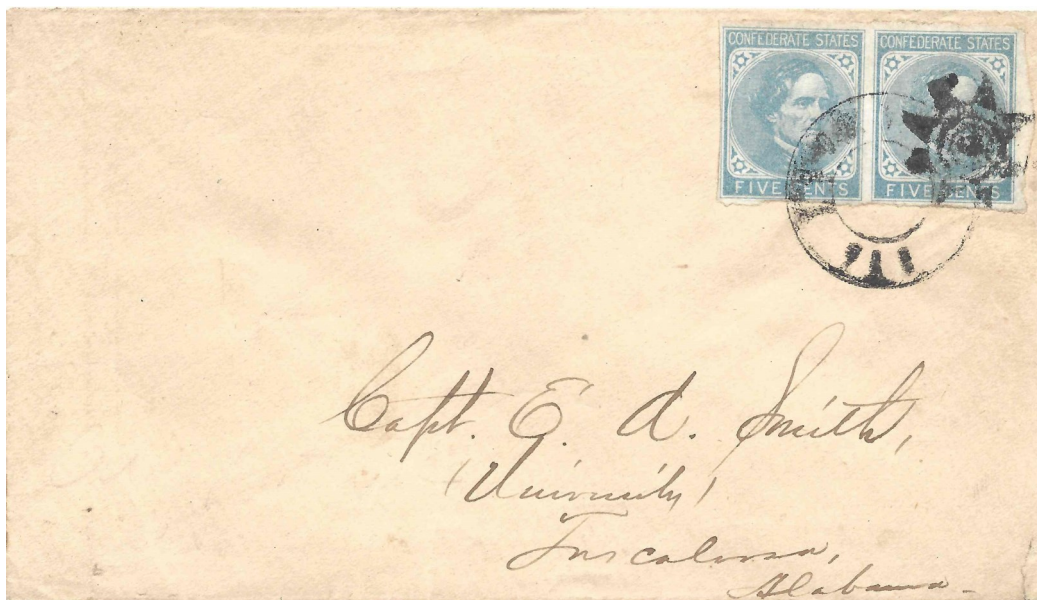 CONFEDERATE STATES
FIVE CENTS
CONFEDERATE STATES
FIVE CENTS
Capt. E. A. Smith,
(University)
Tuscaloosa,
Alabama.